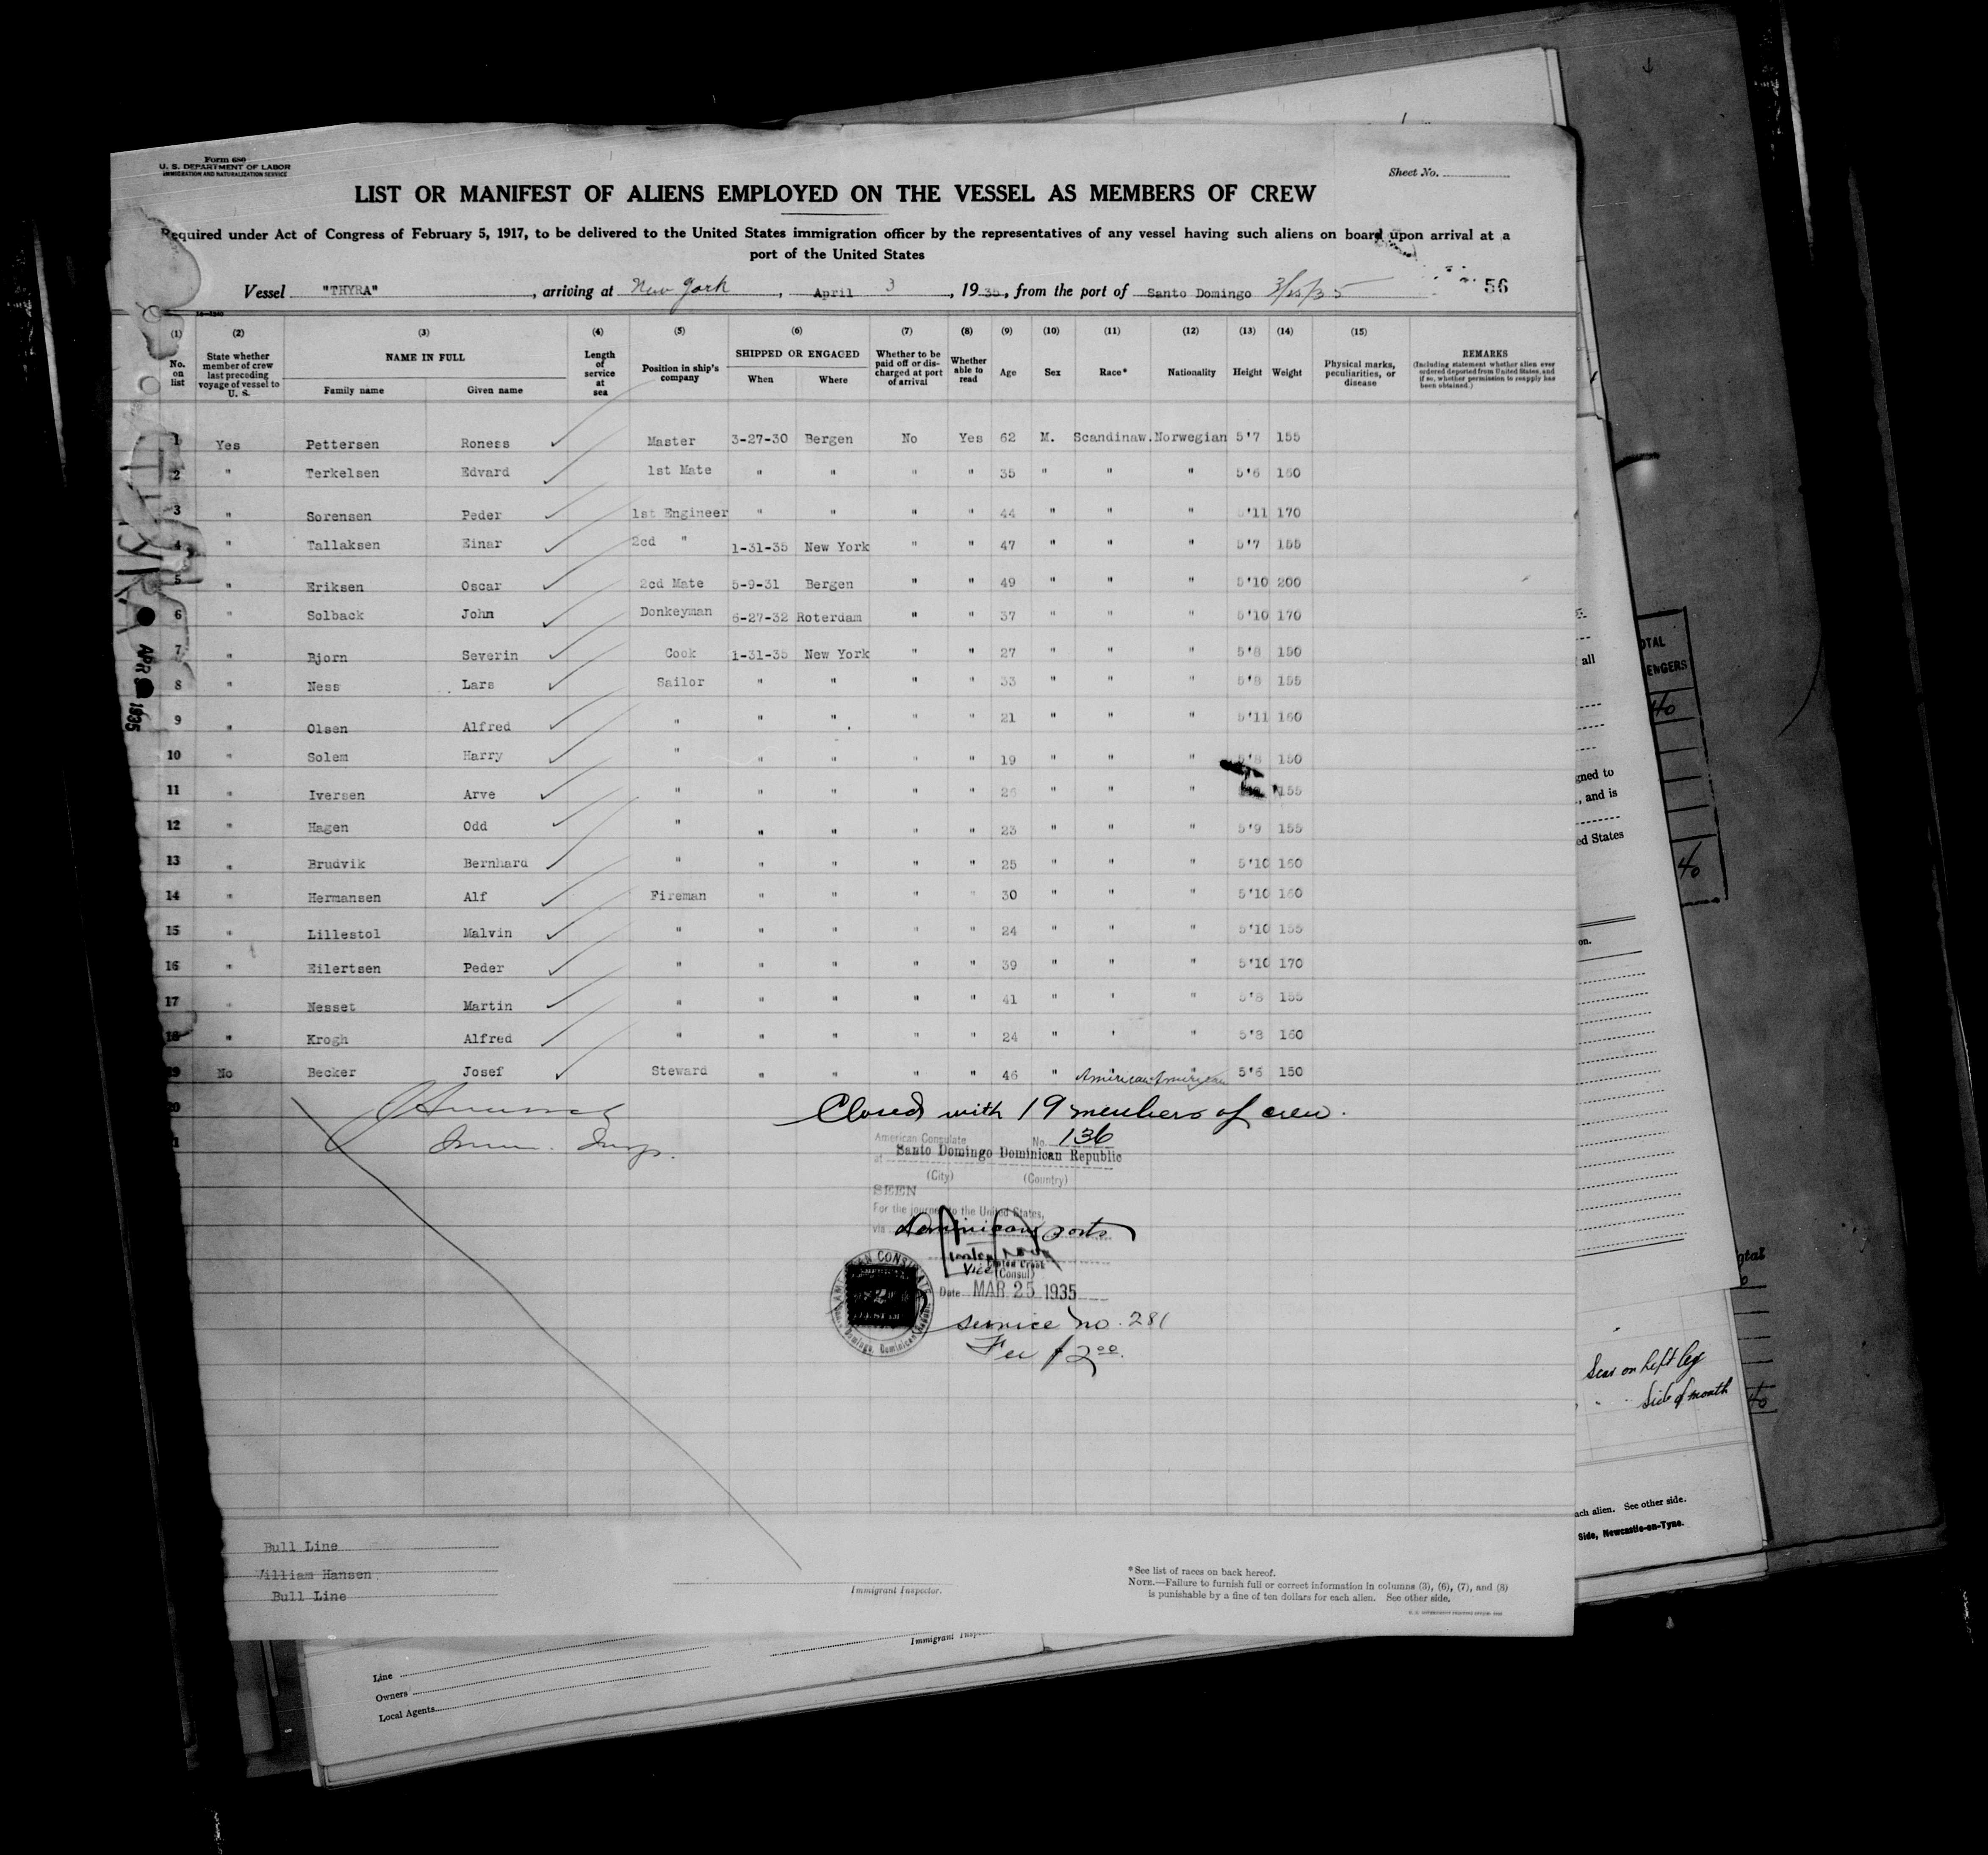 Form 680
U. S. DEPARTMENT OF LABOR
IMMIGRATION AND NATURALIZATION SERVICE
Sheet No.
LIST OR MANIFEST OF ALIENS EMPLOYED ON THE VESSEL AS MEMBERS OF CREW
Required under Act of Congress of February 5, 1917, to be delivered to the United States immigration officer by the representatives of any vessel having such aliens on board upon arrival at a
port of the United States
Vessel "THYRA", arriving at New York, April 3, 1935, from the port of Santo Domingo 3/25/35 56
(1) (2) (3) (4) (5) (6) (7) (8) (9) (10) (11) (12) (13) (14) (15)
No. on list State whether member of crew last preceding voyage of vessel to U. S. NAME IN FULL Family name Given name Length of service at sea Position in ship's company SHIPPED OR ENGAGED When Where Whether to be paid off or discharged at port of arrival Whether able to read Age Sex Race* Nationality Height Weight Physical marks, peculiarities, or disease REMARKS (Including statement whether alien ever ordered deported from United States, and if so, whether permission to reapply has been obtained.)
1 Yes Pettersen Roness Master 3-27-30 Bergen No Yes 62 M. Scandinaw. Norwegian 5'7 155
2 " Terkelsen Edvard 1st Mate " " " " 35 " " " 5'6 160
3 " Sorensen Peder 1st Engineer " " " " 44 " " " 5'11 170
4 " Tallaksen Einar 2cd " 1-31-35 New York " " 47 " " " 5'7 155
5 " Eriksen Oscar 2cd Mate 5-9-31 Bergen " " 49 " " " 5'10 200
6 " Solback John Donkeyman 6-27-32 Roterdam " " 37 " " " 5'10 170
7 " Bjorn Severin Cook 1-31-35 New York " " 27 " " " 5'8 150
8 " Ness Lars Sailor " " " " 33 " " " 5'8 155
9 " Olsen Alfred " " " " " 21 " " " 5'11 160
10 " Solem Harry " " " " " 19 " " " 5'8 150
11 " Iversen Arve " " " " " 26 " " " 155
12 " Hagen Odd " " " " " 23 " " " 5'9 155
13 " Brudvik Bernhard " " " " " 25 " " " 5'10 160
14 " Hermansen Alf Fireman " " " " 30 " " " 5'10 160
15 " Lillestol Malvin " " " " " 24 " " " 5'10 155
16 " Eilertsen Peder " " " " " 39 " " " 5'10 170
17 " Nesset Martin " " " " " 41 " " " 5'8 155
18 " Krogh Alfred " " " " " 24 " " " 5'8 160
19 No Becker Josef Steward " " " " 46 " American American 5'6 150
20 Closed with 19 members of crew.
Imm. Insp.
American Consulate No. 136
at Santo Domingo Dominican Republic
(City) (Country)
SEEN
For the journey to the United States,
via Dominican ports
Vice (Consul)
Date MAR 25 1935
service no. 281
Fee $2.00
APR 3 1935
Bull Line
William Hansen
Bull Line
Immigrant Inspector.
*See list of races on back hereof.
NOTE.—Failure to furnish full or correct information in columns (3), (6), (7), and (8)
is punishable by a fine of ten dollars for each alien. See other side.
Line
Owners
Local Agents
OTAL
ENGERS
40
all
gned to
, and is
ed States
40
on.
otal
Scar on left leg
" side of mouth
40
ach alien. See other side.
Side, Newcastle-on-Tyne.